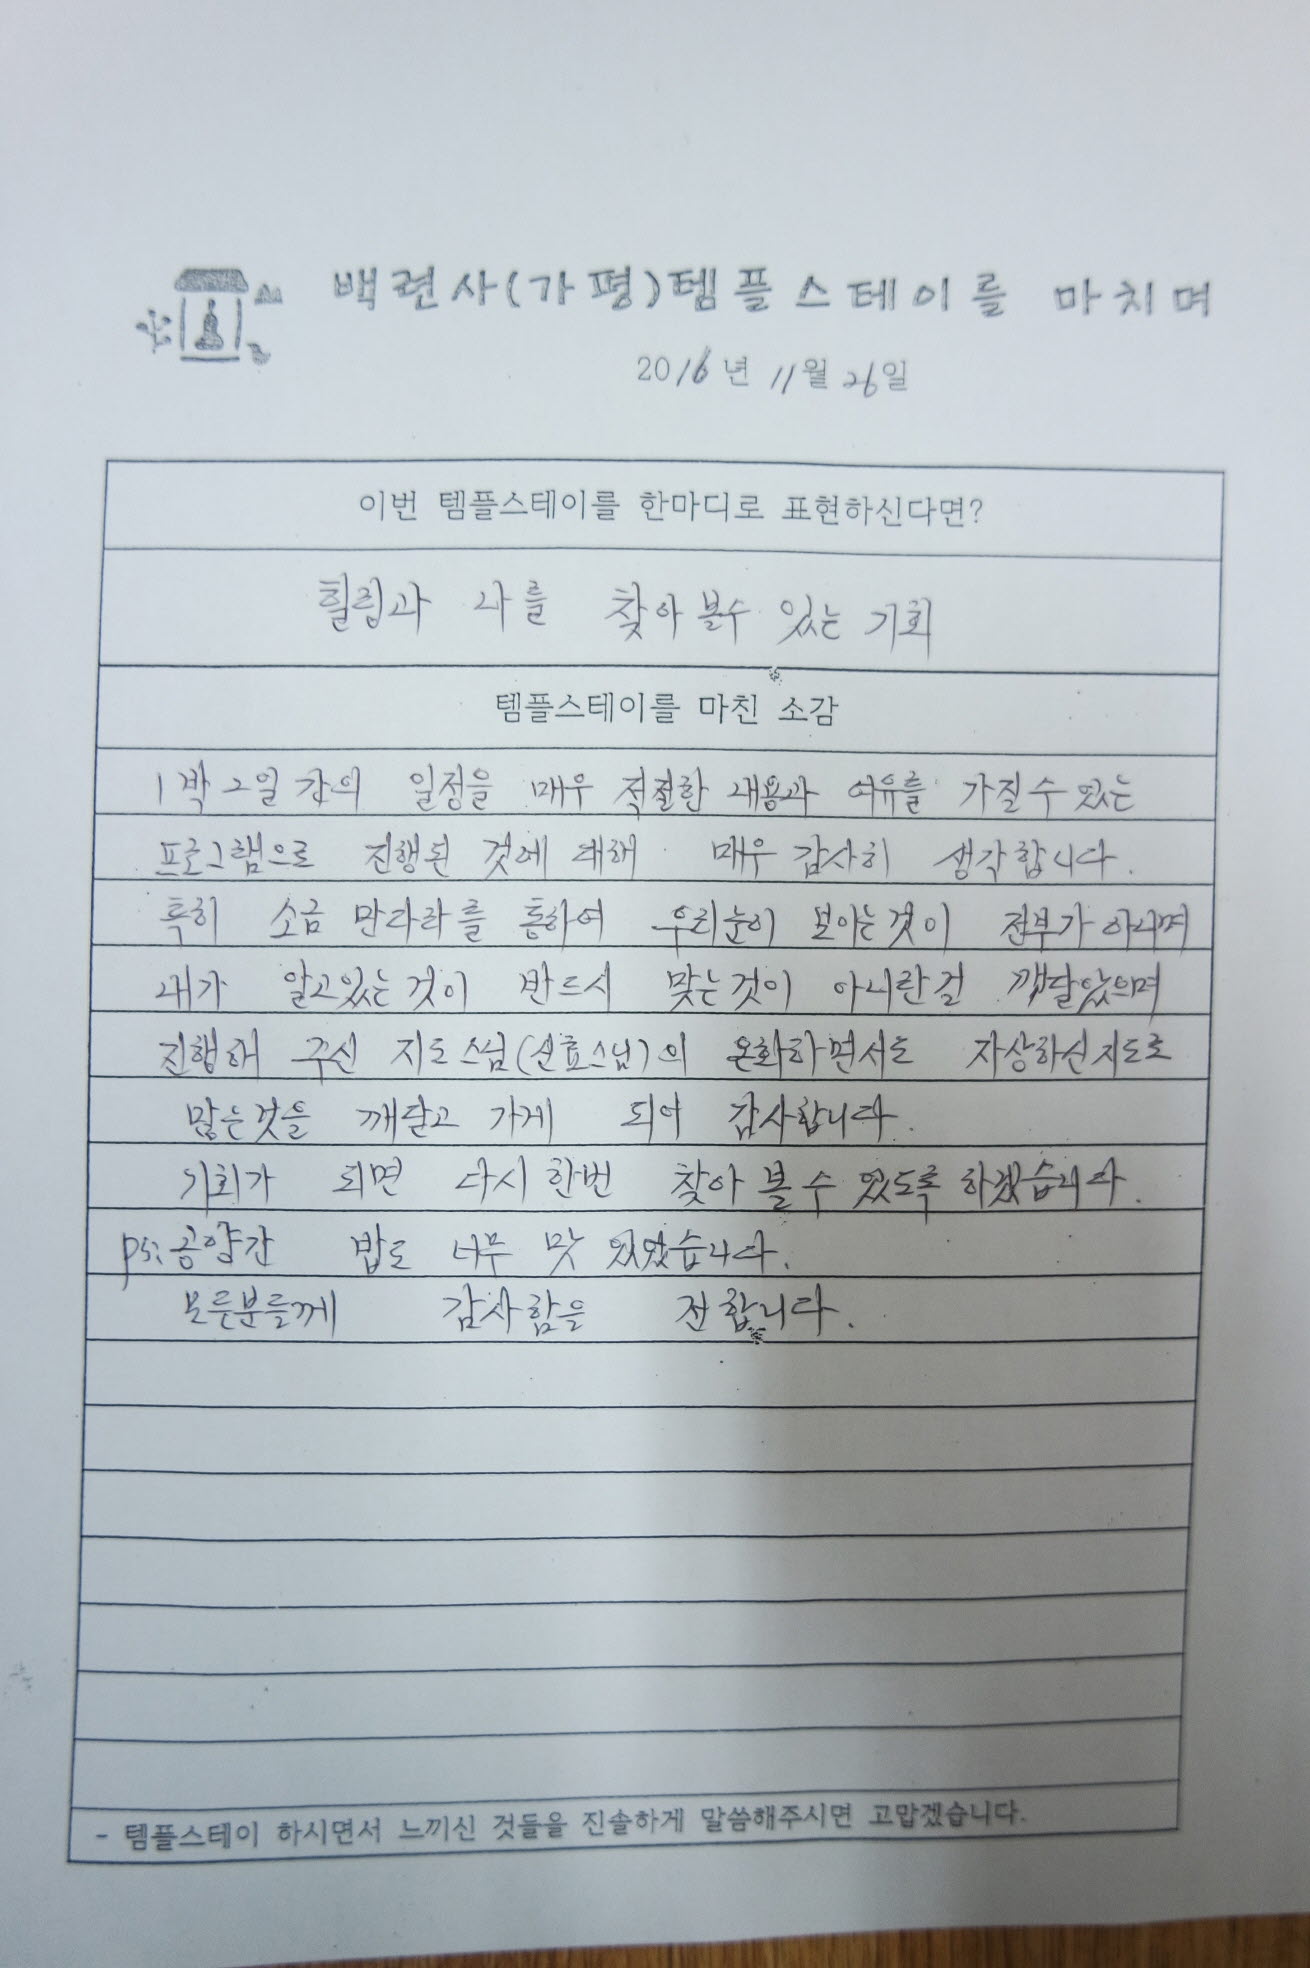 백련사(가평)템플스테이를 마치며
2016년 11월 26일
이번 템플스테이를 한마디로 표현하신다면?
힐링과 나를 찾아볼수 있는 기회
템플스테이를 마친 소감
1박2일간의 일정을 매우 적절한 내용과 여유를 가질수 있는
프로그램으로 진행된 것에 대해 매우 감사히 생각합니다.
특히 소금 만다라를 통하여 우리눈이 보이는것이 전부가 아니며
내가 알고있는것이 반드시 맞는것이 아니란걸 깨달았으며
진행해 주신 지도스님(선효스님)의 온화하면서도 자상하신지도로
많은것을 깨닫고 가게 되어 감사합니다.
기회가 되면 다시한번 찾아 볼수 있도록 하겠습니다.
ps: 공양간 밥도 너무 맛 있었습니다.
모든분들께 감사함을 전합니다.
- 템플스테이 하시면서 느끼신 것들을 진솔하게 말씀해주시면 고맙겠습니다.